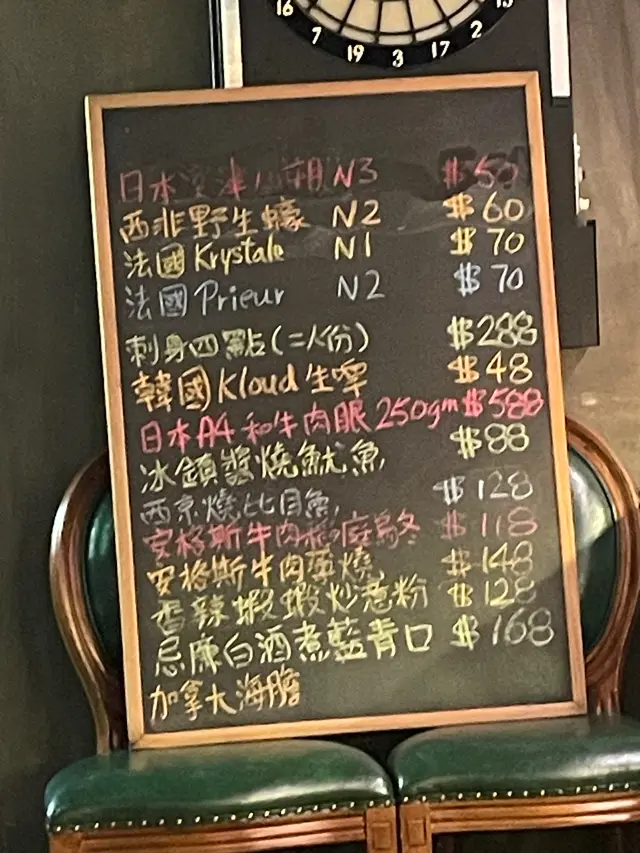 16 7 19 3 17 2 15
日本 津 N3 $50
西非野生蠔 N2 $60
法國 Krystale N1 $70
法國 Prieur N2 $70
刺身四點(二人份) $288
韓國 Kloud 生啤 $48
日本A4和牛肉眼 250gm $588
冰鎮醬燒魷魚 $88
西京燒比目魚 $128
安格斯牛肉 庭烏冬 $118
安格斯牛肉 燒 $148
香辣蝦 炒意粉 $128
忌廉白酒煮藍青口 $168
加拿大海膽